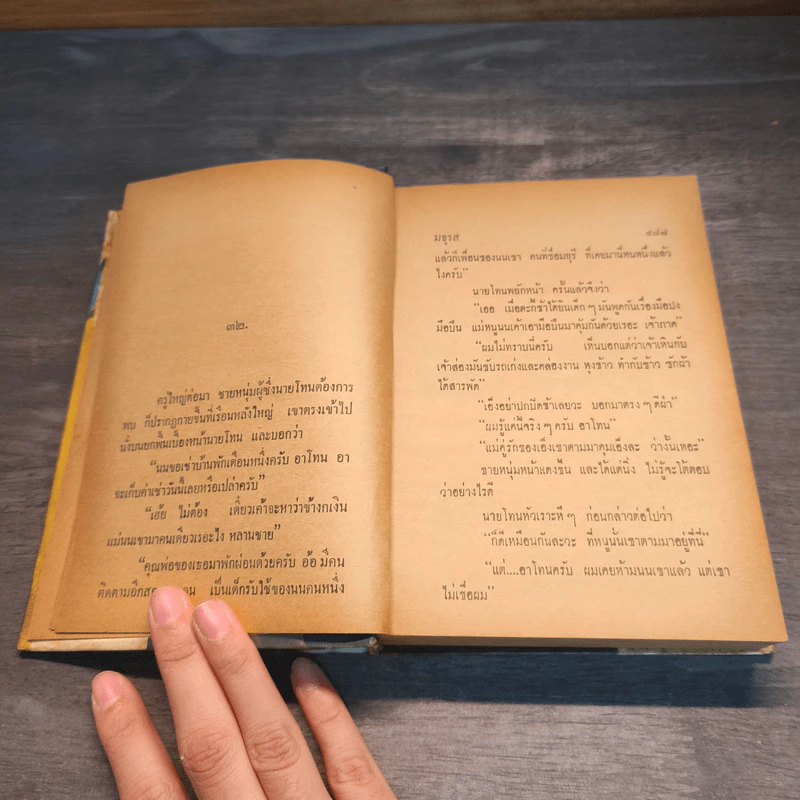 ๓๒.
ครู่ใหญ่ต่อมา ชายหนุ่มผู้ซึ่งนายโทนต้องการ
พบ ก็ปรากฏกายขึ้นที่เรือนหลังใหญ่ เขาตรงเข้าไป
นั่งบนยกพื้นเบื้องหน้านายโทน และบอกว่า
“นนขอเช่าบ้านพักเดือนหนึ่งครับ อาโทน อา
จะเก็บค่าเช่าวันนี้เลยหรือเปล่าครับ”
“เฮ้ย ไม่ต้อง เดี๋ยวเค้าจะหาว่าข้างกเงิน
แม่นนเขามาคนเดียวเรอะไง หลานชาย”
“คุณพ่อของเธอมาพักผ่อนด้วยครับ อ้อ มีคน
ติดตามอีกส คน เป็นเด็กรับใช้ของนนคนหนึ่ง
มธุรส ๕๘๗
แล้วก็เพื่อนของนนเขา คนที่ชื่อมยุรี ที่เคยมานี่หนหนึ่งแล้ว
ไงครับ”
นายโทนพยักหน้า ครั้นแล้วจึงว่า
“เออ เมื่อตะกี้ข้าได้ยินเด็ก ๆ มันพูดกันเรื่องมือปง
มือปืน แม่หนูนนเค้าเอามือปืนมาคุ้มกันด้วยเรอะ เจ้าภาค”
“ผมไม่ทราบนี่ครับ เห็นบอกแต่ว่าเจ้าเหินกับ
เจ้าส่องมันขับรถเก่งและคล่องงาน หุงข้าว ทำกับข้าว ซักผ้า
ได้สารพัด”
“เอ็งอย่าปกปิดข้าเลยวะ บอกมาตรง ๆ ดีฝ่า”
“ผมรู้แค่นี้จริง ๆ ครับ อาโทน”
“แม่คู่รักของเอ็งเขาตามมาคุมเอ็งละ ว่างั้นเหอะ”
ชายหนุ่มหน้าแดงขึ้น และได้แต่นิ่ง ไม่รู้จะโต้ตอบ
ว่าอย่างไรดี
นายโทนหัวเราะหึ ๆ ก่อนกล่าวต่อไปว่า
“ก็ดีเหมือนกันละวะ ที่หนูนั้นเขาตามมาอยู่ที่นี่”
“แต่....อาโทนครับ ผมเคยห้ามนนเขาแล้ว แต่เขา
ไม่เชื่อผม”